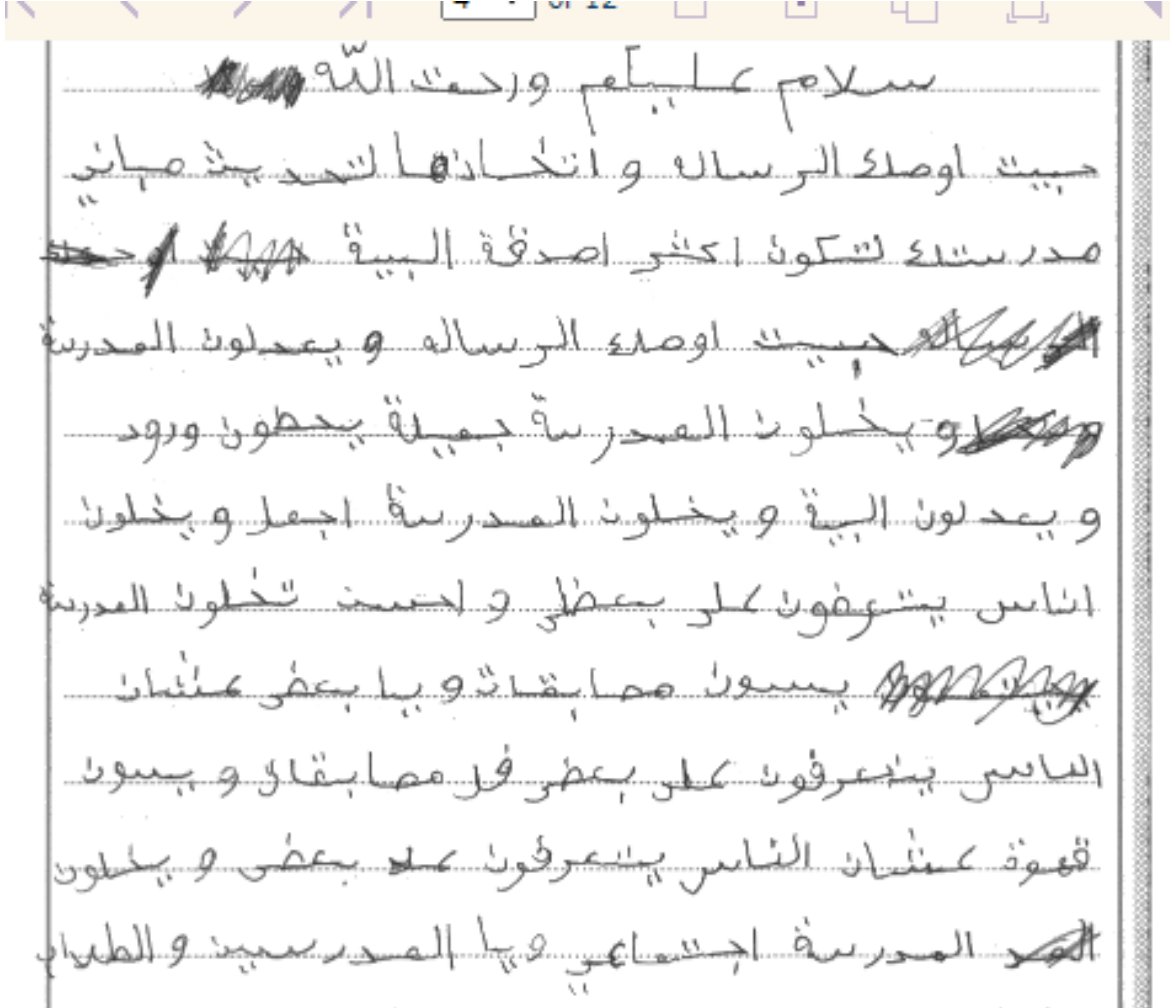 4 of 12
سلام عليكم ورحمت اللّه
حبيت اوصلك الرساله و اتخاذها لتحديث مباني
مدرستك لتكون اكثر اصدقة البيية
حبيت اوصلك الرساله و يعدلون المدرسة
و يخلون المدرسة جميلة يحطون ورود
و يعدلون البية و يخلون المدرسة اجمل و يخلون
اناس يتعرفون على بعظ و احسن تخلون المدرسة
يسون مصابقات ويا بعض عشان
الناس يتعرفون على بعض في مصابقات و يسون
قهوة عشان الناس يتعرفون على بعض و يخلون
المدرسة اجتماعي ويا المدرسين و الطلاب